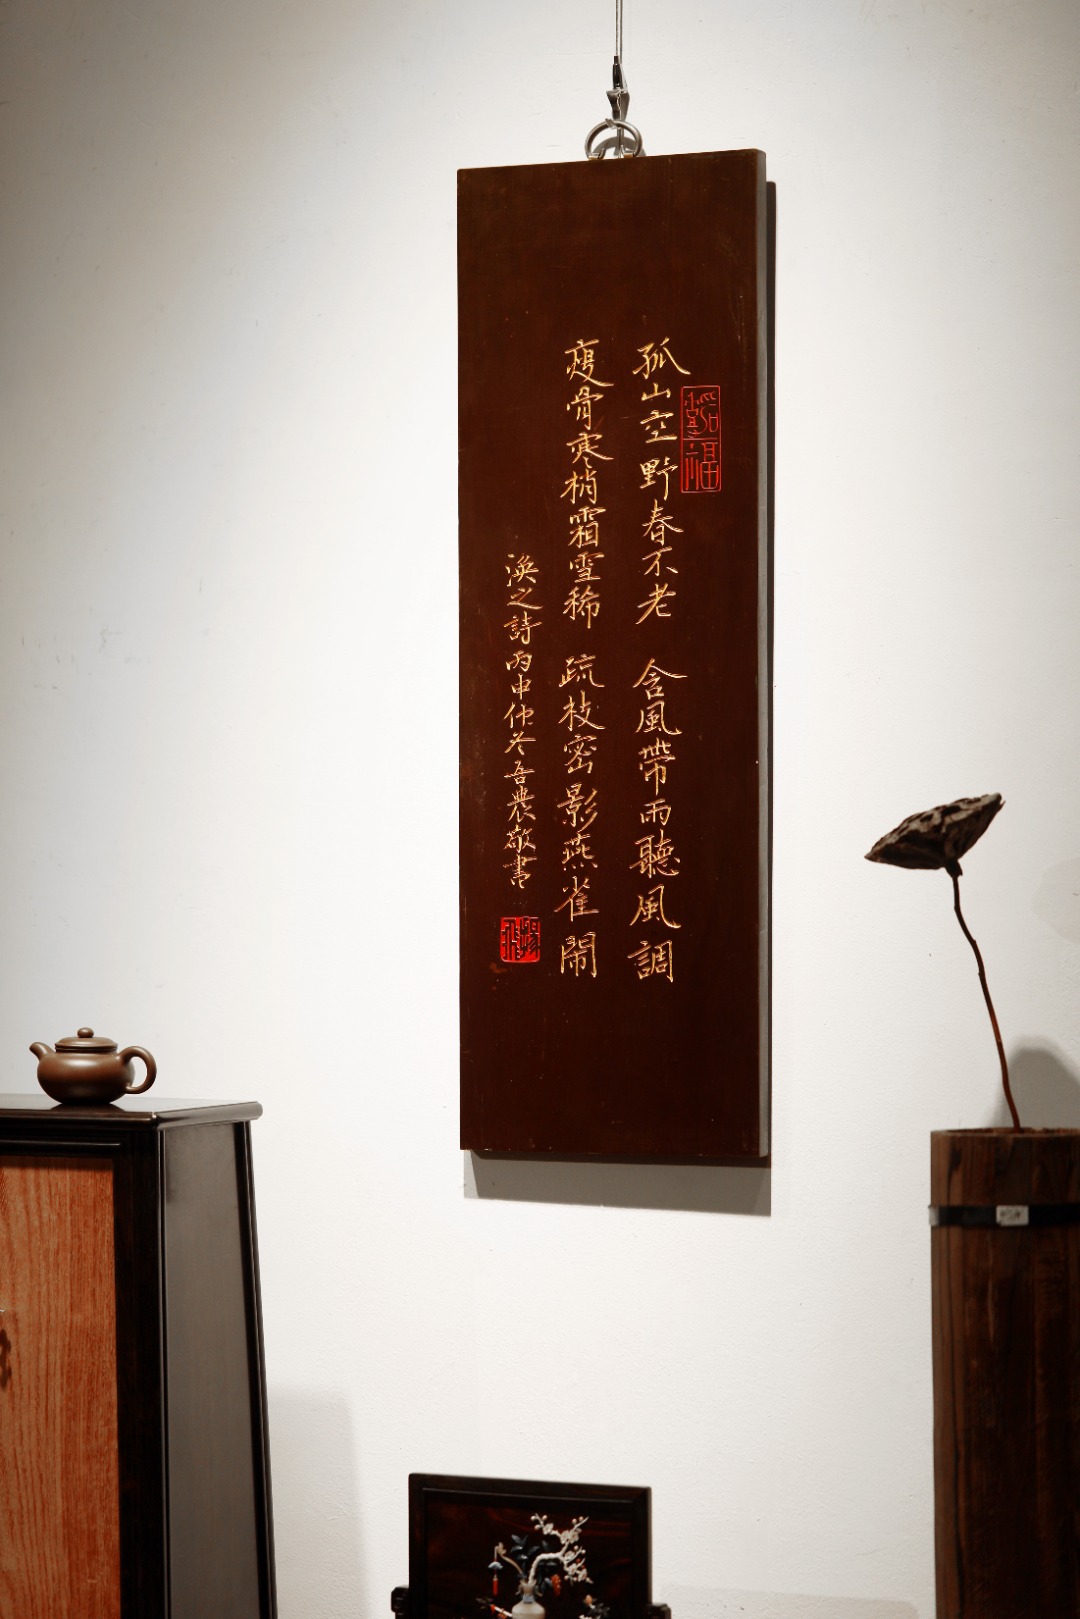 孤山空野春不老　含風帶雨聽風調
瘦骨寒梢霜雪稀　疏枝密影燕雀鬧
渙之詩丙申仲冬吾農敬書